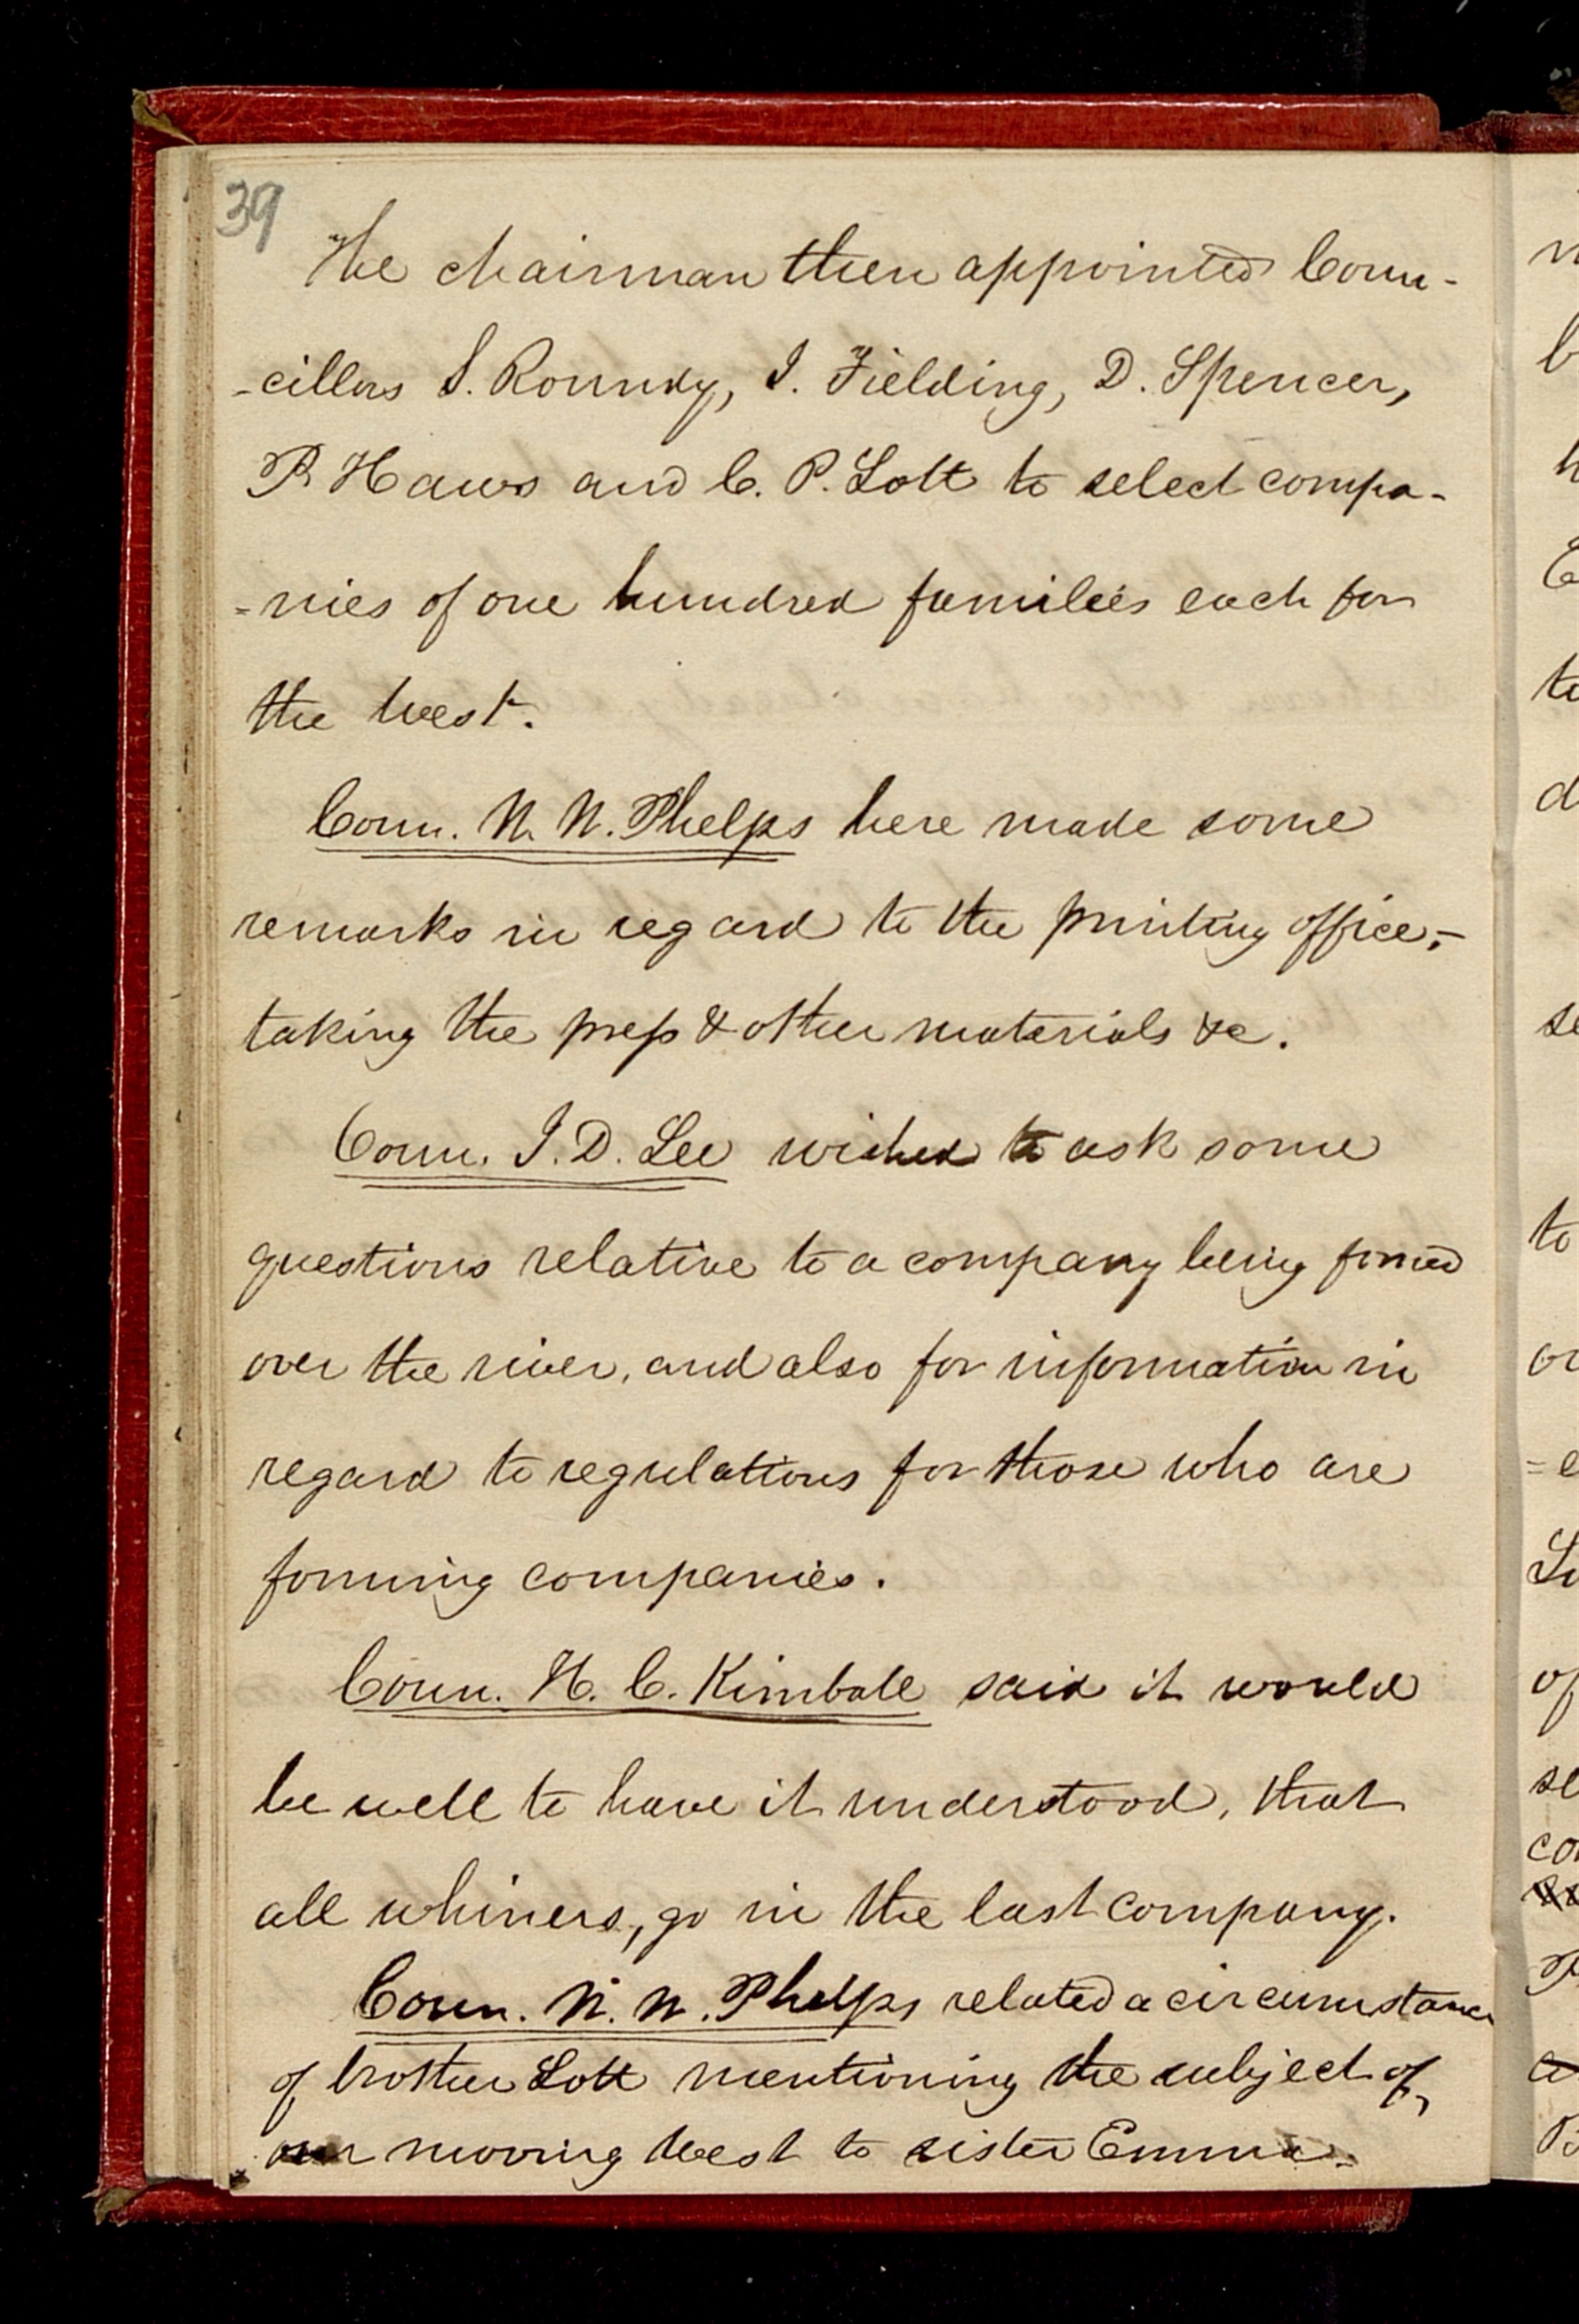 39
The chairman then appointed Coun-
-cillors S. Roundy, J. Fielding, D. Spencer,
P. Haws and C. P. Lott to select compa-
=nies of one hundred families each for
the West.
Coun. W. W. Phelps here made some
remarks in regard to the printing office,-
taking the press & other materials &c.
Coun. J. D. Lee wished to ask some
questions relative to a company being formed
over the river, and also for information in
regard to regulations for those who are
forming companies.
Coun. H. C. Kimball said it would
be well to have it understood, that
all whiners, go in the last company.
Coun. W. W. Phelps related a circumstance
of brother Lott mentioning the subject of,
our moving West to sister Emma.